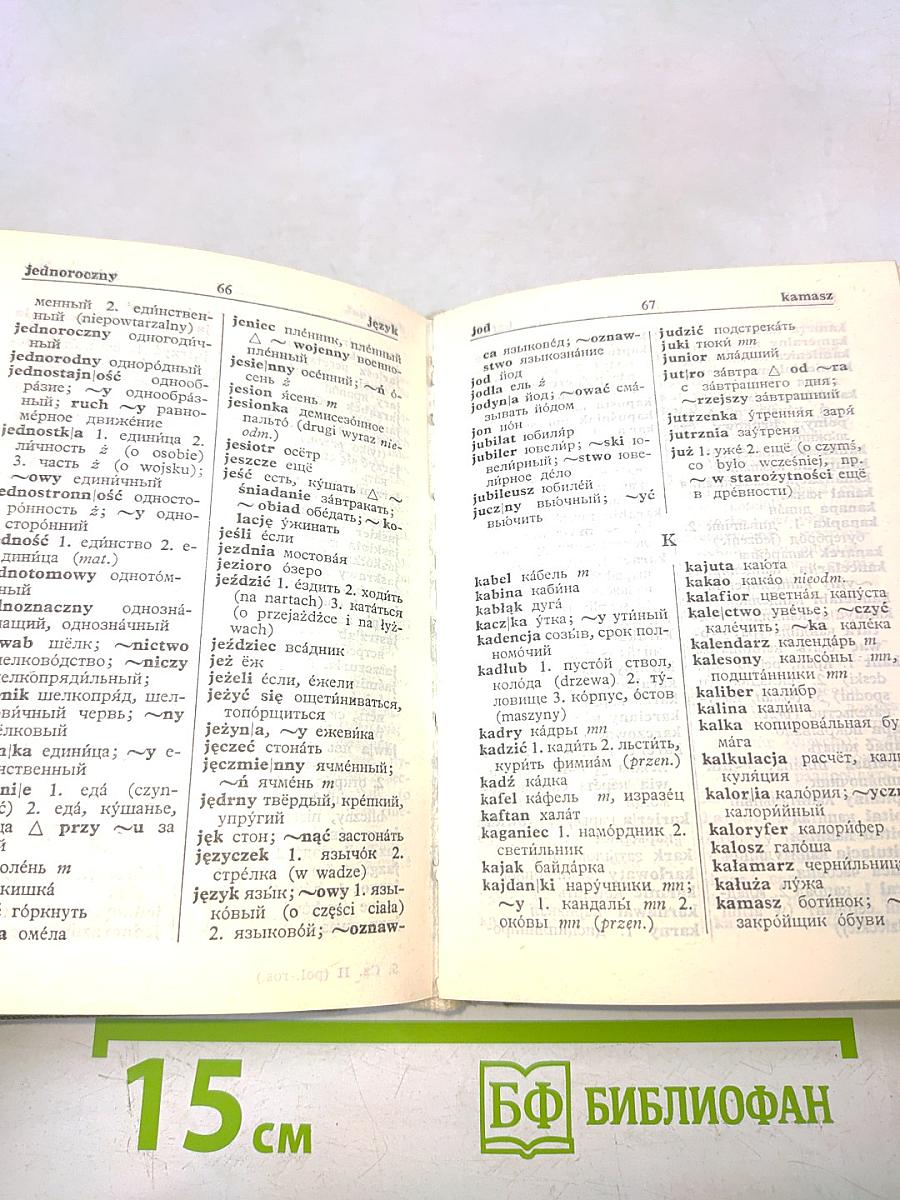 jednoroczny
66
język
менный 2. еди́нствен-
ный (niepowtarzalny)
jednoroczny одногоди́ч-
ный
jednorodny одноро́дный
jednostajn|ość однооб-
ра́зие; ~y однообра́з-
ный; ruch ~y равно-
ме́рное движе́ние
jednostk|a 1. едини́ца 2.
ли́чность ż (o osobie)
3. часть ż (o wojsku);
~owy едини́чный
ednostronn|ość односто-
ро́нность ż; ~y одно-
сторо́нний
dność 1. еди́нство 2. е-
дини́ца (mat.)
dnotomowy одното́м-
ный
noznaczny однозна́-
чащий, однозна́чный
wab шёлк; ~nictwo
елково́дство; ~niczy
елкопряди́льный;
nik шелкопря́д, шел-
ови́чный червь; ~ny
лковый
n|ka едини́ца; ~y е-
нственный
ni|e 1. еда́ (czyn-
ć) 2. еда́, ку́шанье,
ца △ przy ~u за
й
оле́нь m
кишка́
го́ркнуть
a оме́ла
jeniec пле́нник, пле́нный
△ ~ wojenny военно-
пле́нный
jesie|nny осе́нний; ~ń о́-
сень ż
jesion я́сень m
jesionka демисезо́нное
пальто́ (drugi wyraz nie-
odm.)
jesiotr осётр
jeszcze ещё
jeść есть, ку́шать △ ~
śniadanie за́втракать;
~ obiad обе́дать; ~ ko-
lację у́жинать
jeśli е́сли
jezdnia мостова́я
jezioro о́зеро
jeździć 1. е́здить 2. ходи́ть
(na nartach) 3. ката́ться
(o przejażdżce i na łyż-
wach)
jeździec вса́дник
jeż ёж
jeżeli е́сли, е́жели
jeżyć się ощети́ниваться,
топо́рщиться
jeżyn|a, ~y ежеви́ка
jęczeć стона́ть
jęczmie|nny ячме́нный;
~ń ячме́нь m
jędrny твёрдый, кре́пкий,
упру́гий
jęk стон; ~nąć застона́ть
języczek 1. язычо́к 2.
стре́лка (w wadze)
język язы́к; ~owy 1. язы-
ко́вый (o części ciała)
2. языково́й; ~oznaw-
jod
67
kamasz
ca языкове́д; ~oznaw-
stwo языкозна́ние
jod йод
jodła ель ż
jodyn|a йод; ~ować сма́-
зывать йо́дом
jon ио́н
jubilat юбиля́р
jubiler ювели́р; ~ski ю-
вели́рный; ~stwo юве-
ли́рное де́ло
jubileusz юбиле́й
jucz|ny вью́чный; ~yć
вью́чить
judzić подстрека́ть
juki тюки́ mn
junior мла́дший
jut|ro за́втра △ od ~ra
с за́втрашнего дня;
~rzejszy за́втрашний
jutrzenka у́тренняя заря́
jutrznia зау́треня
już 1. уже́ 2. ещё (o czymś,
co było wcześniej, np.
~ w starożytności ещё
в дре́вности)
K
kabel ка́бель m
kabina каби́на
kabłąk дуга́
kacz|ka у́тка; ~y ути́ный
kadencja созы́в, срок пол-
номо́чий
kadłub 1. пусто́й ствол,
коло́да (drzewa) 2. ту́-
ловище 3. ко́рпус, о́стов
(maszyny)
kadry ка́дры mn
kadzić 1. кади́ть 2. льсти́ть,
кури́ть фимиа́м (przen.)
kadź ка́дка
kafel ка́фель m, изразе́ц
kaftan хала́т
kaganiec 1. намо́рдник 2.
свети́льник
kajak байда́рка
kajdan|ki нару́чники mn;
~y 1. кандалы́ mn 2.
око́вы mn (przen.)
kajuta каю́та
kakao кака́о nieodm.
kalafior цветна́я капу́ста
kale|ctwo уве́чье; ~czyć
кале́чить; ~ka кале́ка
kalendarz календа́рь m
kalesony кальсо́ны mn,
подшта́нники mn
kaliber кали́бр
kalina кали́на
kalka копирова́льная бу-
ма́га
kalkulacja расчёт, каль
куля́ция
kalor|ia кало́рия; ~ycz
калори́йный
kaloryfer калори́фер
kalosz гало́ша
kałamarz черни́льниц
kałuża лу́жа
kamasz боти́нок; ~
закро́йщик о́буви
15 см
БФ БИБЛИОФАН